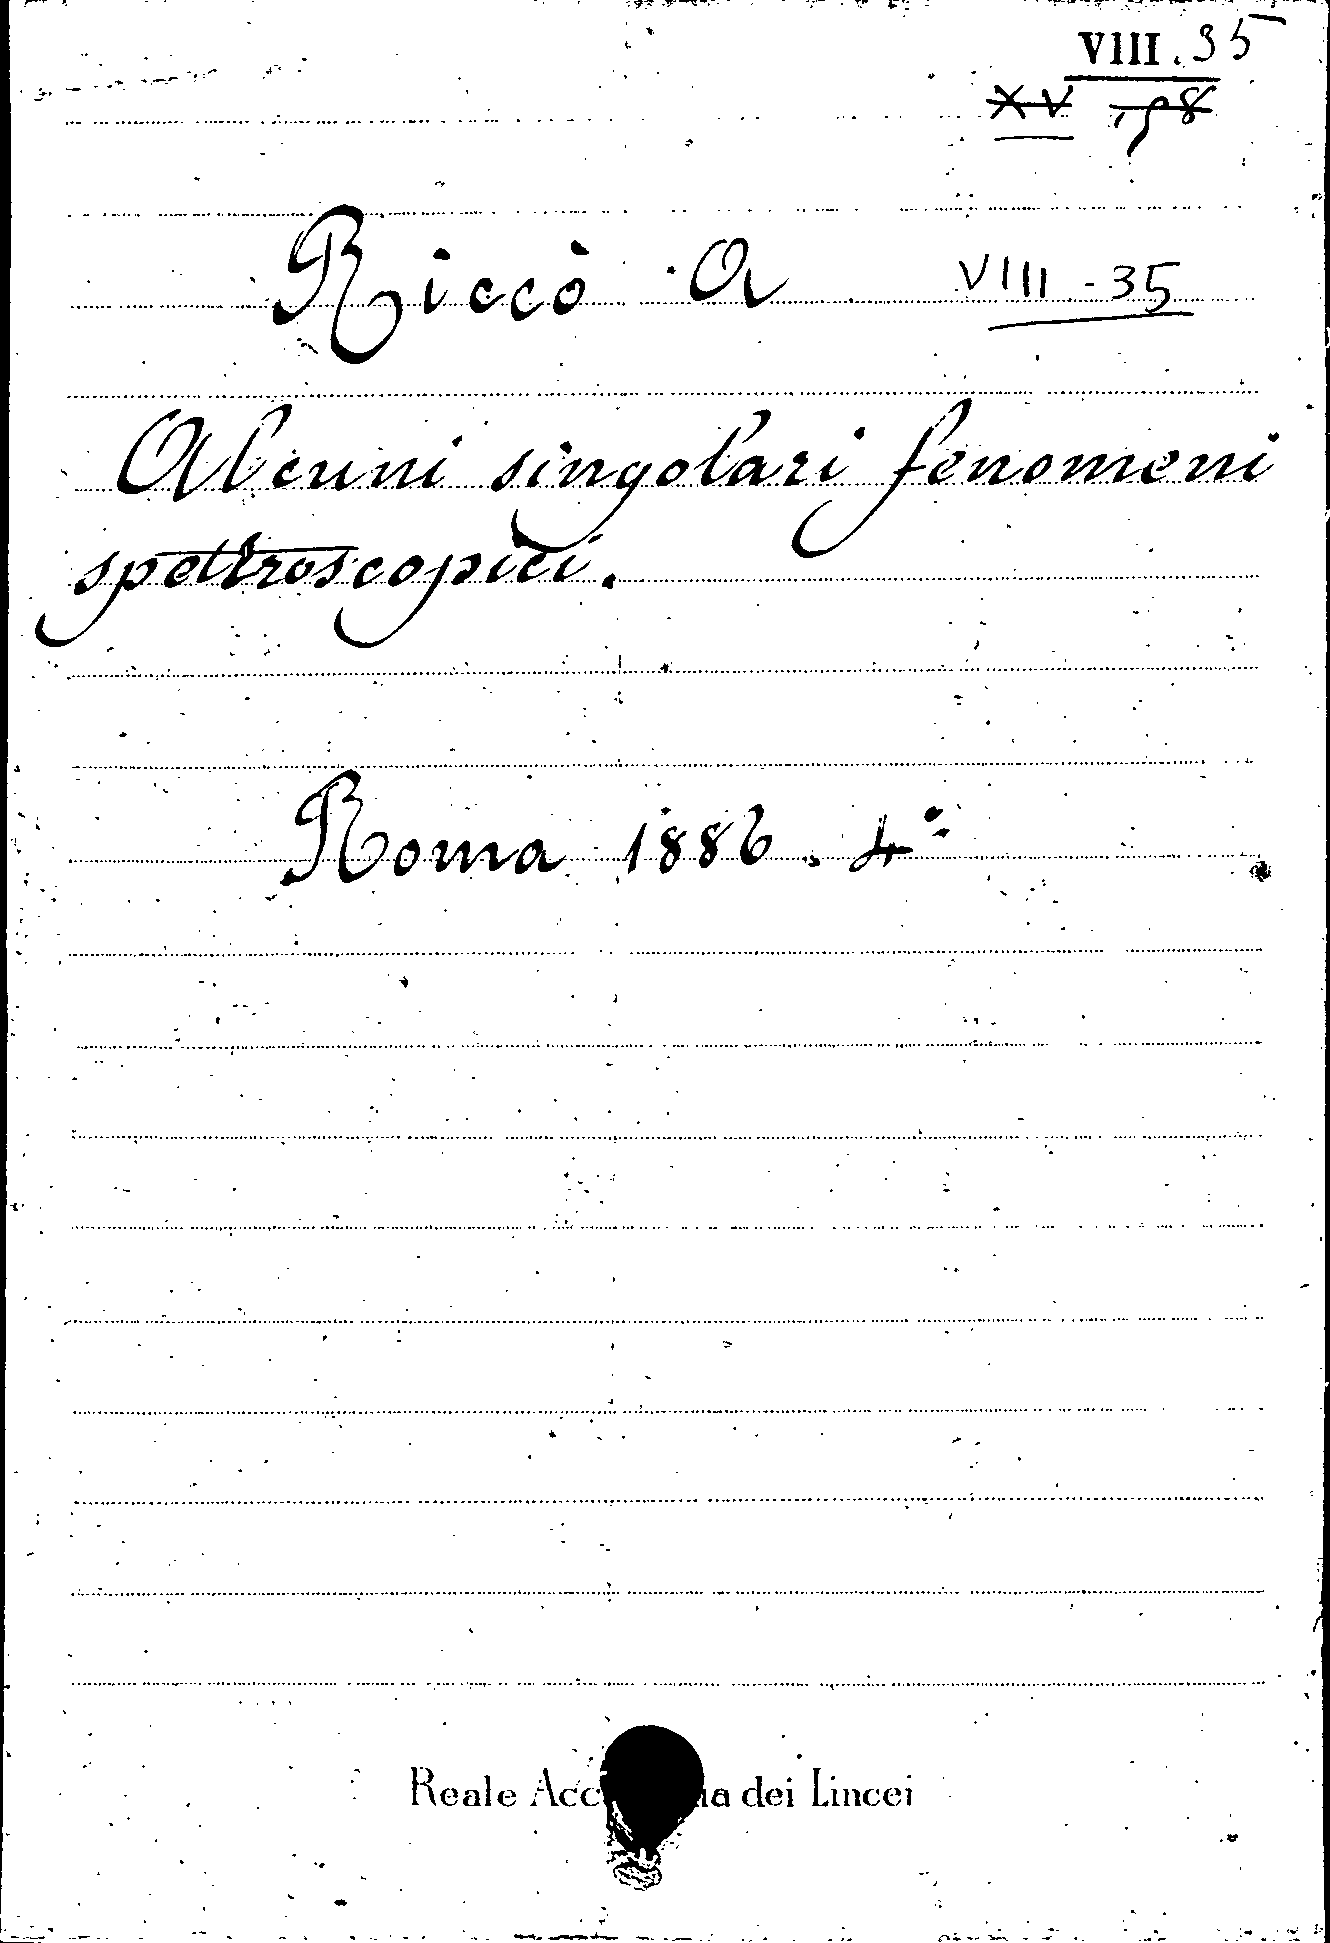 VIII.35
XV
Riccò A
VIII-35
Alcuni singolari fenomeni
spettroscopici.
Roma 1886. 4°
Reale dei Lincei